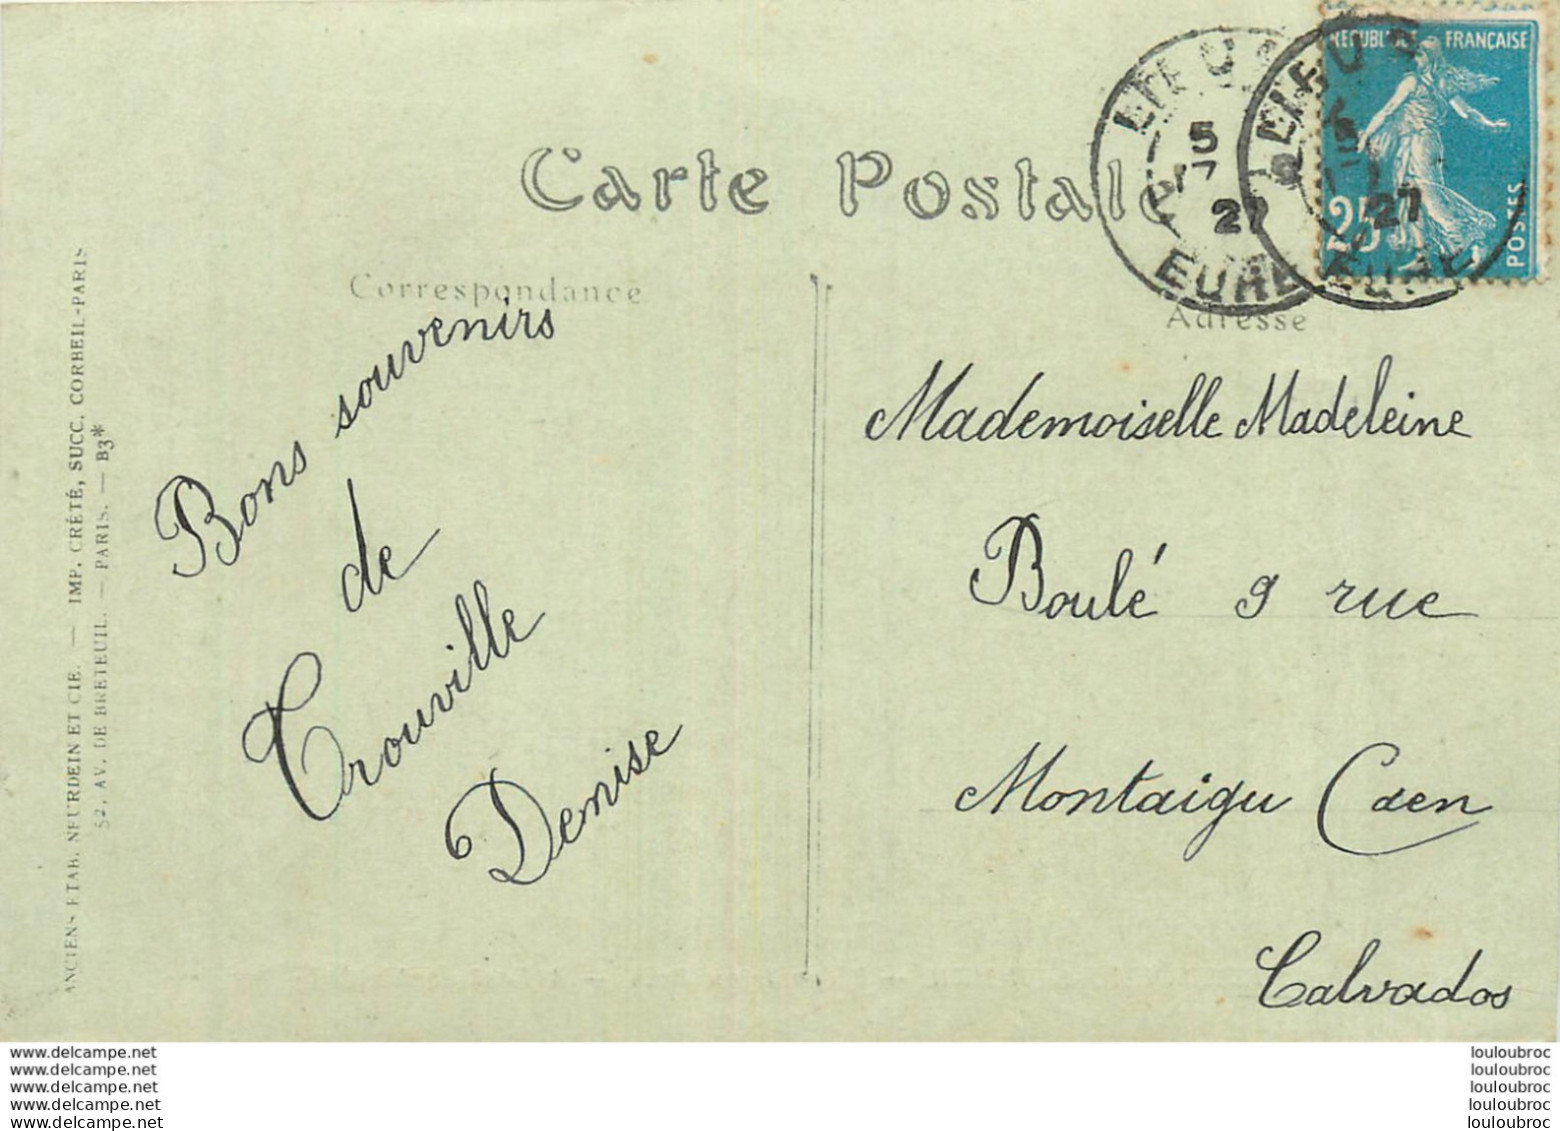 Carte Postale
Correspondance
Adresse
RÉPUBLIQUE FRANÇAISE
25
POSTES
5
27
EURE
5
27
EURE
Bons souvenirs
de
Trouville
Denise
Mademoiselle Madeleine
Boulé 9 rue
Montaigu Caen
Calvados
ANCIENS ETAB. NEURDEIN ET CIE. — IMP. CRÉTÉ, SUCC. CORBEIL-PARIS
52, AV. DE BRETEUIL. — PARIS. — B3*
www.delcampe.net
www.delcampe.net
www.delcampe.net
www.delcampe.net
www.delcampe.net
louloubroc
louloubroc
louloubroc
louloubroc
louloubroc